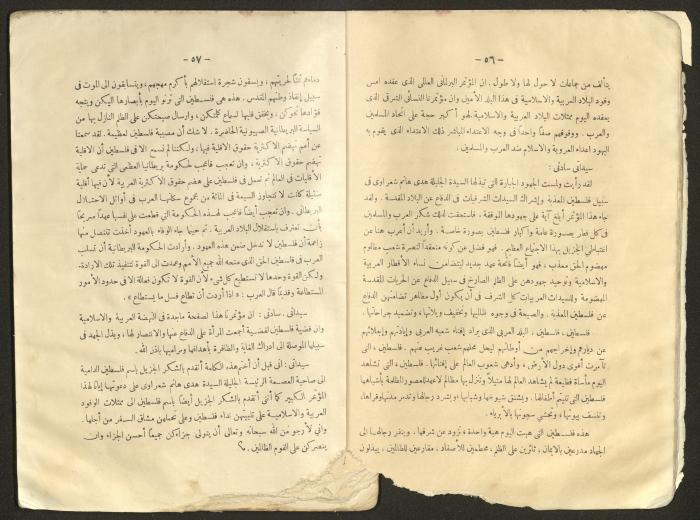 — ٥٦ —
يتألف من جماعات لا حول لها ولا طول . ان المؤتمر البرلماني العالمي الذي عقده امس
وفود البلاد العربية والاسلامية في هذا البلد الأمين وان مؤتمرنا النسائي الشرقي الذي
يعقده اليوم ممثلات البلاد العربية والاسلامية لهو أكبر حجة على اتحاد المسلمين
والعرب . ووقوفهم صفاً واحداً في وجه الاعتداء المباشر ذلك الاعتداء الذي يقوم به
اليهود أعداء العروبة والاسلام ضد العرب والمسلمين .
سيداتي سادتي :
لقد رأيت ولمست الجهود الجبارة التي تبذلها السيدة الجليلة هدى هانم شعراوي في
سبيل فلسطين المعذبة وإشراك السيدات الشرقيات في الدفاع عن البلاد المقدسة . ولقد
جاء هذا المؤتمر أبلغ آية على جهودها الموفقة . فاستحقت لذلك شكر العرب والمسلمين
في كل قطر بصورة عامة واكبار فلسطين بصورة خاصة . وأريد أن أعرب هنا عن
اغتباطي الجزيل بهذا الاجتماع العظيم . فهو فضل عن كونه منعقداً لنصرة شعب مظلوم
مهضوم الحق معذب ، فهو أيضاً فاتحة عهد جديد ليتضامن نساء الأقطار العربية
والاسلامية وتوحيد جهودهن على الظلم الصارخ في سبيل الدفاع عن الحريات المقدسة
المهضومة وللسيدات العربيات كل الشرف في أن يكون أول مظاهر تضامنهن الدفاع
عن فلسطين المعذبة . والصيحة في وجوه ظالميها وتخفيف ويلاتها ، وتضميد جراحاتها .
فلسطين . فلسطين ، البلد العربي الذي يراد إفناء شعبه العربي وإبادتهم وإجلائهم
عن ديارهم وإخراجهم من أوطانهم ليحل محلهم شعب غريب عنهم . فلسطين ، التي
تآمرت أقوى دول الأرض ، وأدهى شعوب العالم على إفنائها . فلسطين ، التي تشاهد
اليوم مأساة فظيعة لم يشاهد العالم لها مثيلاً وتنزل بها مظالم لا عهد للعصور المظلمة بأشباهها
فلسطين التي تيتم أطفالها . ويشنق شيوخها وشبابها ، ويشرد رجالها وتدمر مدنها وقراها ،
وتنسف بيوتها ، وتحشى سجونها بالأبرياء .
هذه فلسطين التي هبت اليوم هبة واحدة ، تزود عن شرفها . وينفر رجالها الى
الجهاد مدرعين بالايمان . ثائرين على الظلم . محطمين للأصفاد . مقارعين للظالمين . يبذلون
— ٥٧ —
دماءهم ثمناً لحريتهم ، ويسقون شجرة استقلالهم بأكرم مهجهم ، ويتسابقون الى الموت في
سبيل إنقاذ وطنهم المقدس . هذه هي فلسطين التي ترنو اليوم بأبصارها اليكن ويتجه
فؤادها نحوكن ، ويخفق قلبها لسماع كلمتكن ، وارسال صيحتكن على الظلم النازل بها من
السياسة البريطانية الصهيونية الحاضرة . لا شك أن مصيبة فلسطين لعظيمة . لقد سمعنا
عن أمم تهضم الأكثرية حقوق الاقلية فيها ، ولكننا لم نسمع الا في فلسطين أن الاقلية
تهضم حقوق الأكثرية ، وان تعجب فاعجب لحكومة بريطانيا العظمى التي تدعي حماية
الأقليات في العالم ثم تعمل في فلسطين على هضم حقوق الأكثرية العربية لأن فيها أقلية
ضئيلة كانت لا تتجاوز السبعة في المائة من مجموع سكانها العرب في أوائل الاحتلال
البريطاني . وان تعجب أيضاً فاعجب لهذه الحكومة التي قطعت على نفسها عهداً صريحاً
بأن تعترف باستقلال البلاد العربية . ثم حينما جاء الوفاء بالعهود أخذت تتنصل منها
زاعمة أن فلسطين لا تدخل ضمن هذه العهود . وأرادت الحكومة البريطانية أن تسلب
العرب في فلسطين الحق الذي منحه الله جميع الأمم وعمدت الى القوة لتنفيذ تلك الارادة .
ولكن القوة وحدها لا تستطيع كل شيء لأن القوة لا تكون فعالة الا في حدود الأمور
المستطاعة وقديماً قال العرب : « اذا أردت أن تطاع فسل ما يستطاع » .
سيداتي . سادتي : ان مؤتمرنا هذا لصفحة ماجدة في النهضة العربية والاسلامية
وان قضية فلسطين لقضية أجمعت المرأة على الدفاع عنها والانتصار لها ، وبذل الجهد في
سبيلها الموصلة الى ادراك الغاية والظافرة بأهدافها ومراميها باذن الله .
سيداتي : اني قبل أن أختم هذه الكلمة أتقدم بالشكر الجزيل باسم فلسطين الدامية
الى صاحبة العصمة الرئيسة الجليلة السيدة هدى هانم شعراوي على دعوتها إيانا لهذا
المؤتمر الكبير كما أنني أتقدم بالشكر الجزيل أيضاً باسم فلسطين الى ممثلات الوفود
العربية والاسلامية على تلبيتهن نداء فلسطين وعلى تحملهن مشاق السفر من أجلها .
واني لأرجو من الله سبحانه وتعالى أن يتولى جزاءكن جميعاً أحسن الجزاء وان
ينصركن على القوم الظالمين . ؟